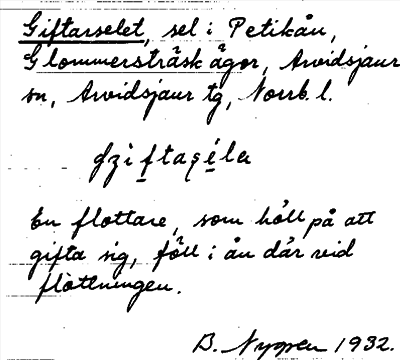 Giftarselet, sel i Petikån,
Glommersträsk ägor, Arvidsjaur
sn, Arvidsjaur tg, Norrb. l.
En flottare, som höll på att
gifta sig, föll i ån där vid
flottningen.
B. Nygren 1932.